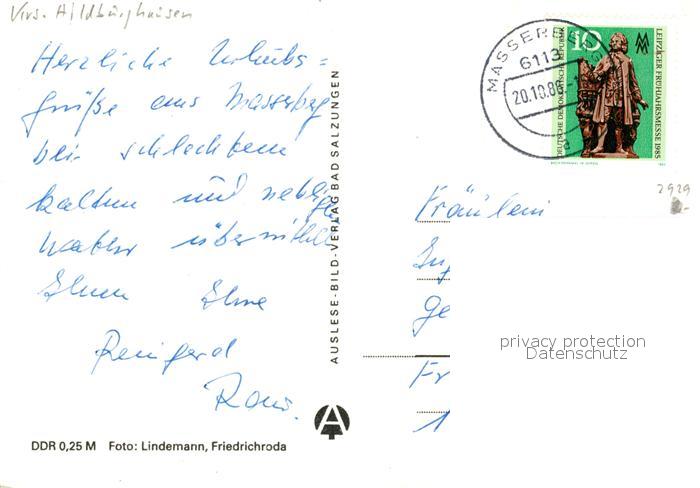 Krs. Hildburghausen
Herzliche Urlaubs=
grüße aus Masserberg
bei schlechtem
kalten und nebligen
Wetter übermittelt
Ihnen Ihre
Reingard
DDR 0,25 M Foto: Lindemann, Friedrichroda
AUSLESE-BILD-VERLAG BAD SALZUNGEN
MASSERBERG
6113
20.10.86
a
10
MM
DEUTSCHE DEMOKRATISCHE REPUBLIK
LEIPZIGER FRÜHJAHRSMESSE 1985
2929
Fräulein
Ge
Fr
1
privacy protection
Datenschutz